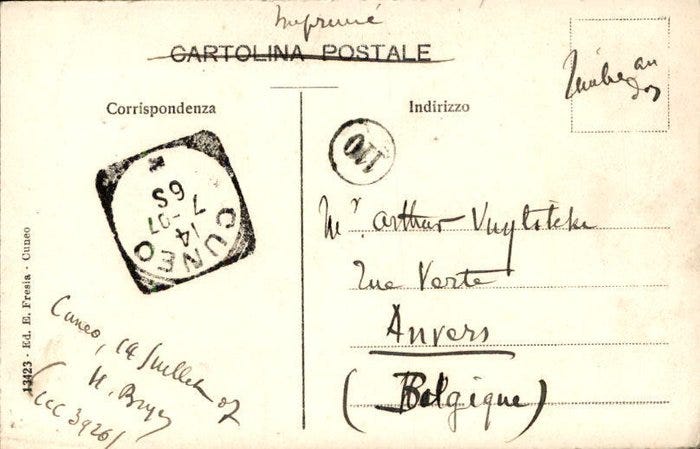 Imprimé
CARTOLINA POSTALE
Timbre au
dos
Corrispondenza
Indirizzo
CUNEO
14
7 -07
6S
Mr. Arthur Vuylsteke
Rue Verte
Anvers
(Belgique)
Cuneo, 14 Juillet 07
H.
(CC 3926)
13423 - Ed. E. Fresia - Cuneo